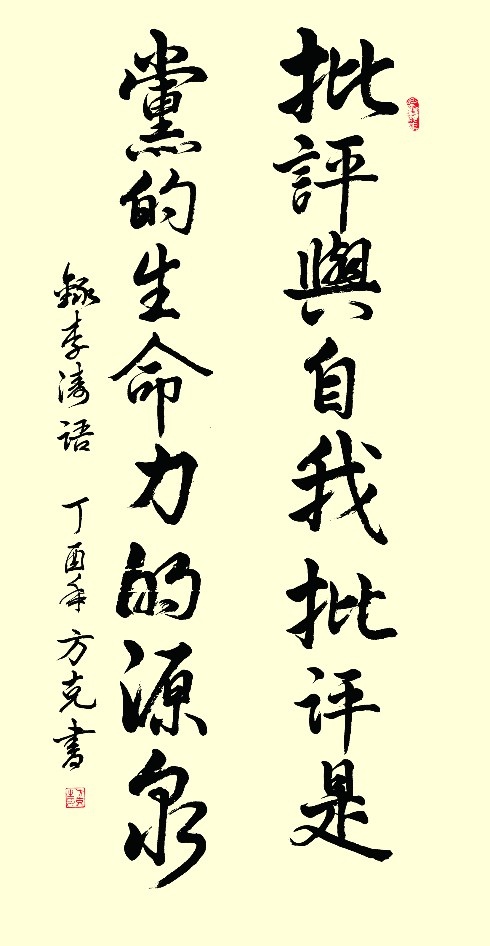 批評與自我批评是
黨的生命力的源泉
錄李濤语 丁酉年方克書